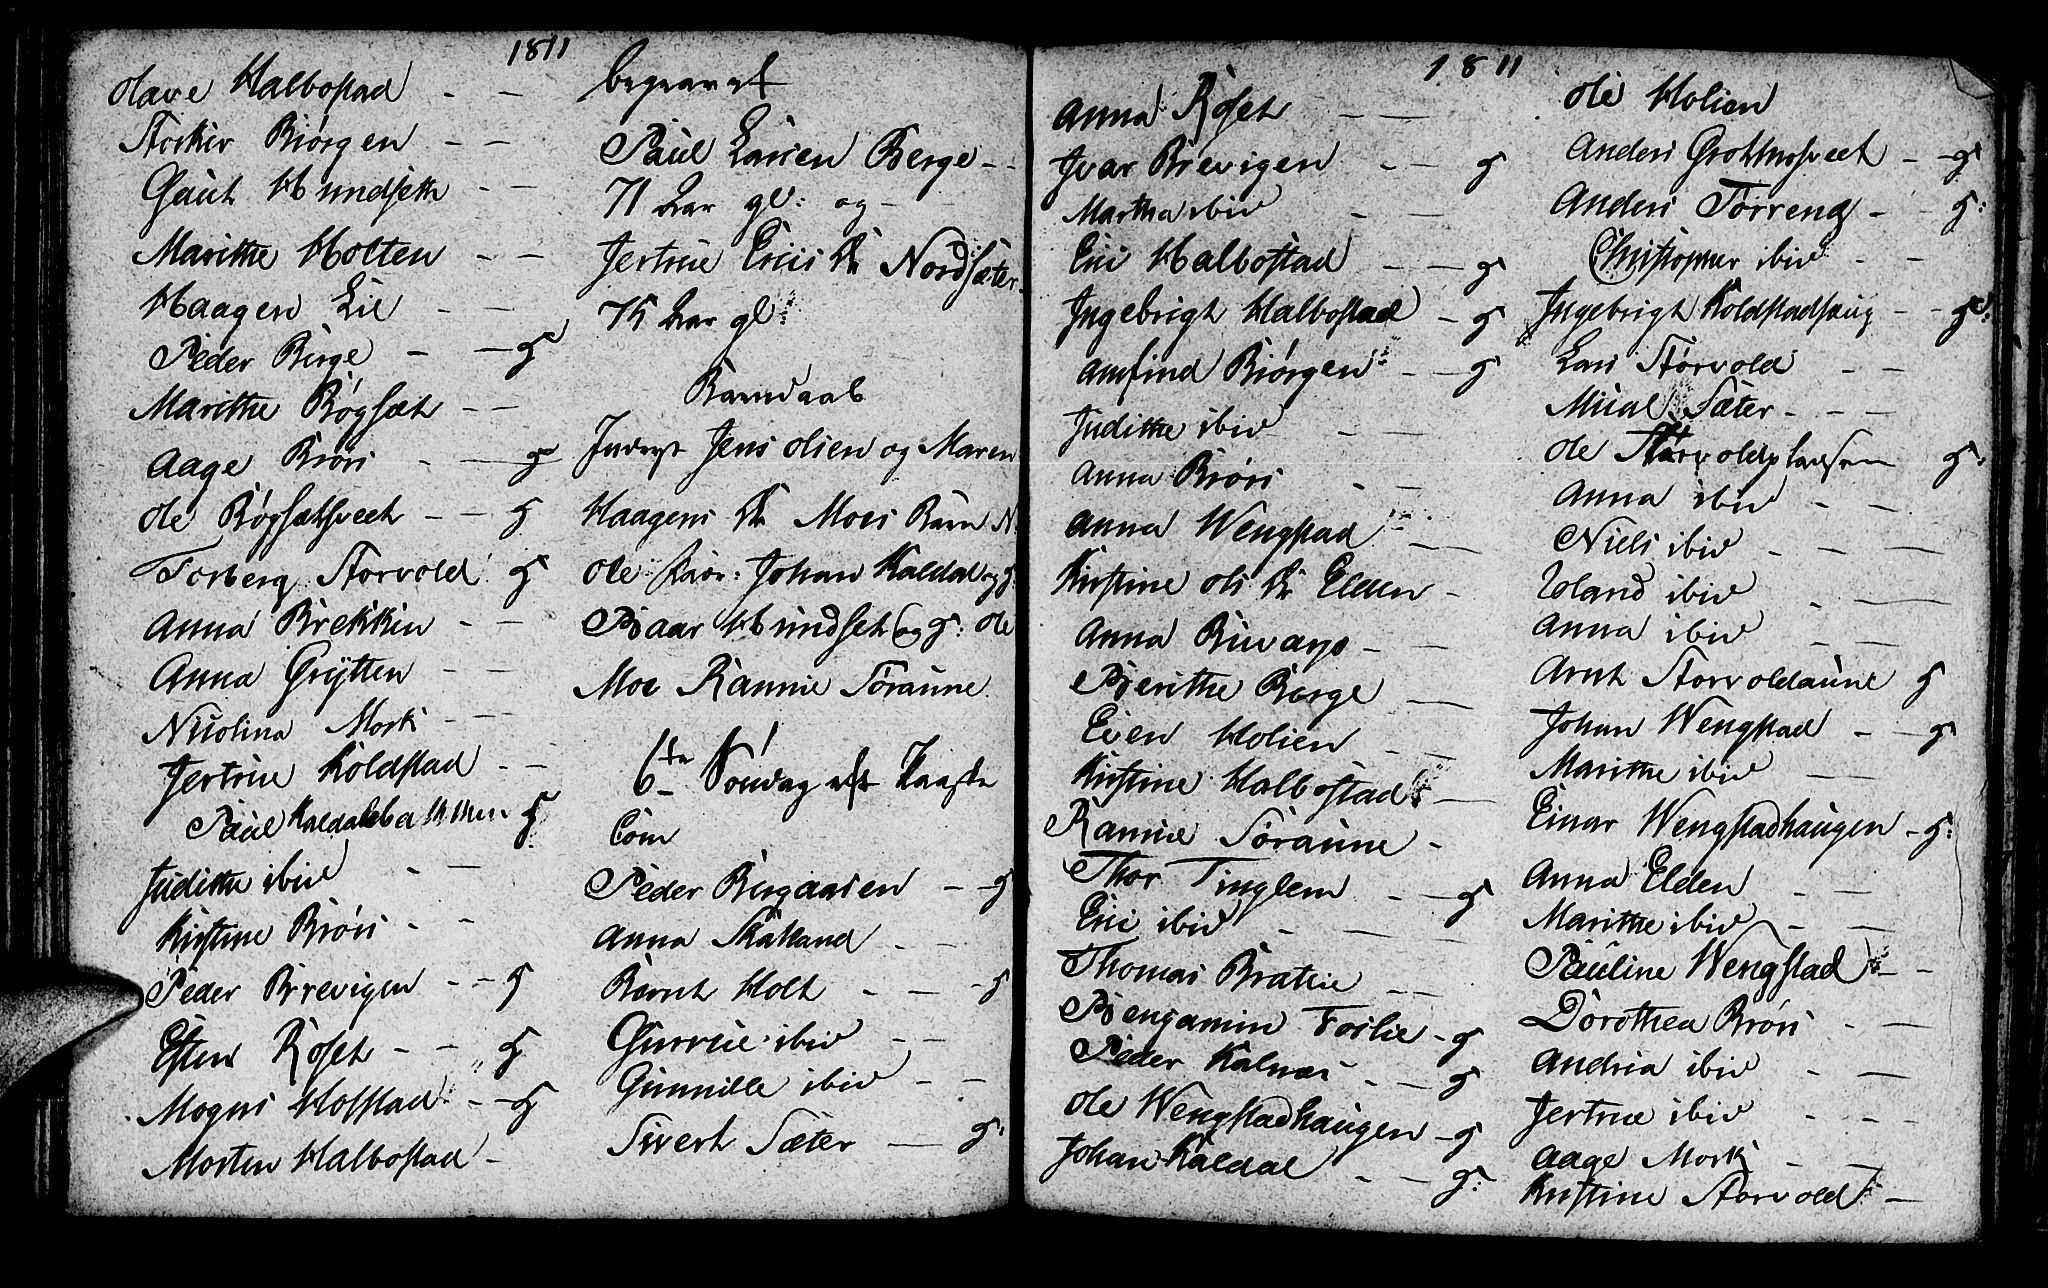 1811
Olave Halbostad - -
Storker Biørgen - -
Gaut Hundseth - -
Marithe Holten - -
Haagen Lie - -
Peder Berge - - g
Marithe Røgset - -
Aage Brøn - - g
Ole Røgsetsveet - - g
Torberg Storvold g
Anna Brekken - -
Anna Grytten - -
Nicolina Mork - -
Jertrue Koldstad - -
Paul Kaldal g
Judithe ibid - -
Kirstine Brøn - -
Peder Brevigen - - g
Esten Roset - - g
Mogns Hofstad - - g
Morten Halbostad -
begravet
Paul Larsen Berge - -
71 Aar gl: og -
Jertrue Erics Dr Nordsæter
75 Aar gl
Barndaab
Jens Olsen og Maren
Haagens Dr Moes Barn N.
Ole Johan Kaldal og g.
Baar Hundset og g: Ole
Moe Rannie Søraune
6te Søndag eft Paaske
Com
Peder Bergaasen - - g
Anna Skatland - -
Bernt Holt - - g
Gurrue ibid - -
Gunnille ibid - -
Sivert Sæter - g:
1811
Anna Roset - -
Ivar Brevigen - - g
Martha ibid - -
Eric Halbostad - - g
Ingebrigt Halbostad - g
Arnfind Biørgen - - g
Judithe ibid - -
Anna Brøn - -
Anna Wengstad - -
Kirstine Ols Dr Elden -
Anna - -
Berithe Berge - -
Even Holien - -
Kirstine Halbostad -
Rannie Søraune -
Thor Tinglem - - g
Eric ibid - -
Thomas Brattie - -
Bengamin Foslie - g
Peder Kalnæs - - g
Ole Wengstadhaugen - g
Johan Kaldal - - g:
Ole Holien
Anders - - g
Anders Torreng - - g:
Christopher ibid - -
Ingebrigt Koldstadhaug - - g:
Lars Storvold - -
Mical Sæter - - -
Ole g:
Anna ibid - -
Niels ibid - - -
Roland ibid - -
Anna ibid - -
Arnt Storvoldaune g
Johan Wengstad - - g
Marithe ibid - -
Einar Wengstadhaugen - g:
Anna Elden - -
Marithe ibid - -
Pauline Wengstad - -
Dorothea Brøn - -
Andrea ibid - -
Jertrue ibid - -
Aage Mork - -
Kirstine Storvold -